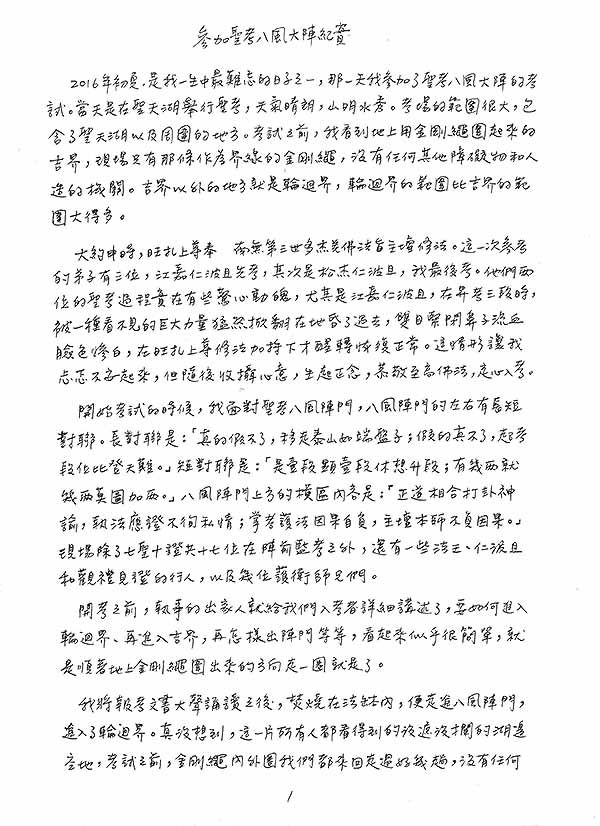 參加聖考八風大陣紀實
2016年初夏,是我一生中最難忘的日子之一,那一天我參加了聖考八風大陣的考
試。當天是在聖天湖舉行聖考,天氣晴朗,山明水秀。考場的範圍很大,包
含了聖天湖以及周圍的地方。考試之前,我看到地上用金剛繩圍起來的
吉界,現場只有那條作為界線的金剛繩,沒有任何其他障礙物和人
造的機關。吉界以外的地方就是輪迴界,輪迴界的範圍比吉界的範
圍大得多。
大約申時,旺扎上尊奉 南無第三世多杰羌佛法旨主壇修法。這一次參考
的弟子有三位,江喬仁波且先考,其次是松杰仁波且,我最後考。他們兩
位的聖考過程實在有些驚心動魄,尤其是江喬仁波且,在昇考三段時,
被一種看不見的巨大力量猛然掀翻在地昏了過去,雙目緊閉鼻子流血
臉色慘白,在旺扎上尊修法加持下才醒轉恢復正常。這情形讓我
忐忑不安起來,但隨後收攝心意,生起正念,恭敬至高佛法,定心入考。
開始考試的時候,我面對聖考八風陣門,八風陣門的左右有長短
對聯。長對聯是:「真的假不了,移走泰山如端盤子;假的真不了,起考
段位比登天難。」短對聯是:「是壹段顆壹段休想升段;有幾两就
幾两莫圖加两。」八風陣門上方的橫匾內容是:「正道相合打卦神
諭,執法應證不徇私情;掌考護法因果自負,主壇本師不負因果。」
現場除了七聖十證共十七位在陣前監考之外,還有一些法王、仁波且
和觀禮見證的行人,以及幾位護衛師兄們。
開考之前,執事的出家人就給我們入考者詳細講述了,要如何進入
輪迴界、再進入吉界,再怎樣出陣門等等,看起來似乎很簡單,就
是順著地上金剛繩圍出來的方向走一圈就是了。
我將報考文書大聲誦讀之後,焚燒在法缽內,便走進八風陣門,
進入了輪迴界。真沒想到,這一片所有人都看得到的沒遮沒攔的湖邊
空地,考試之前,金剛繩內外圍我們都來回走過好幾趟,沒有任何
1